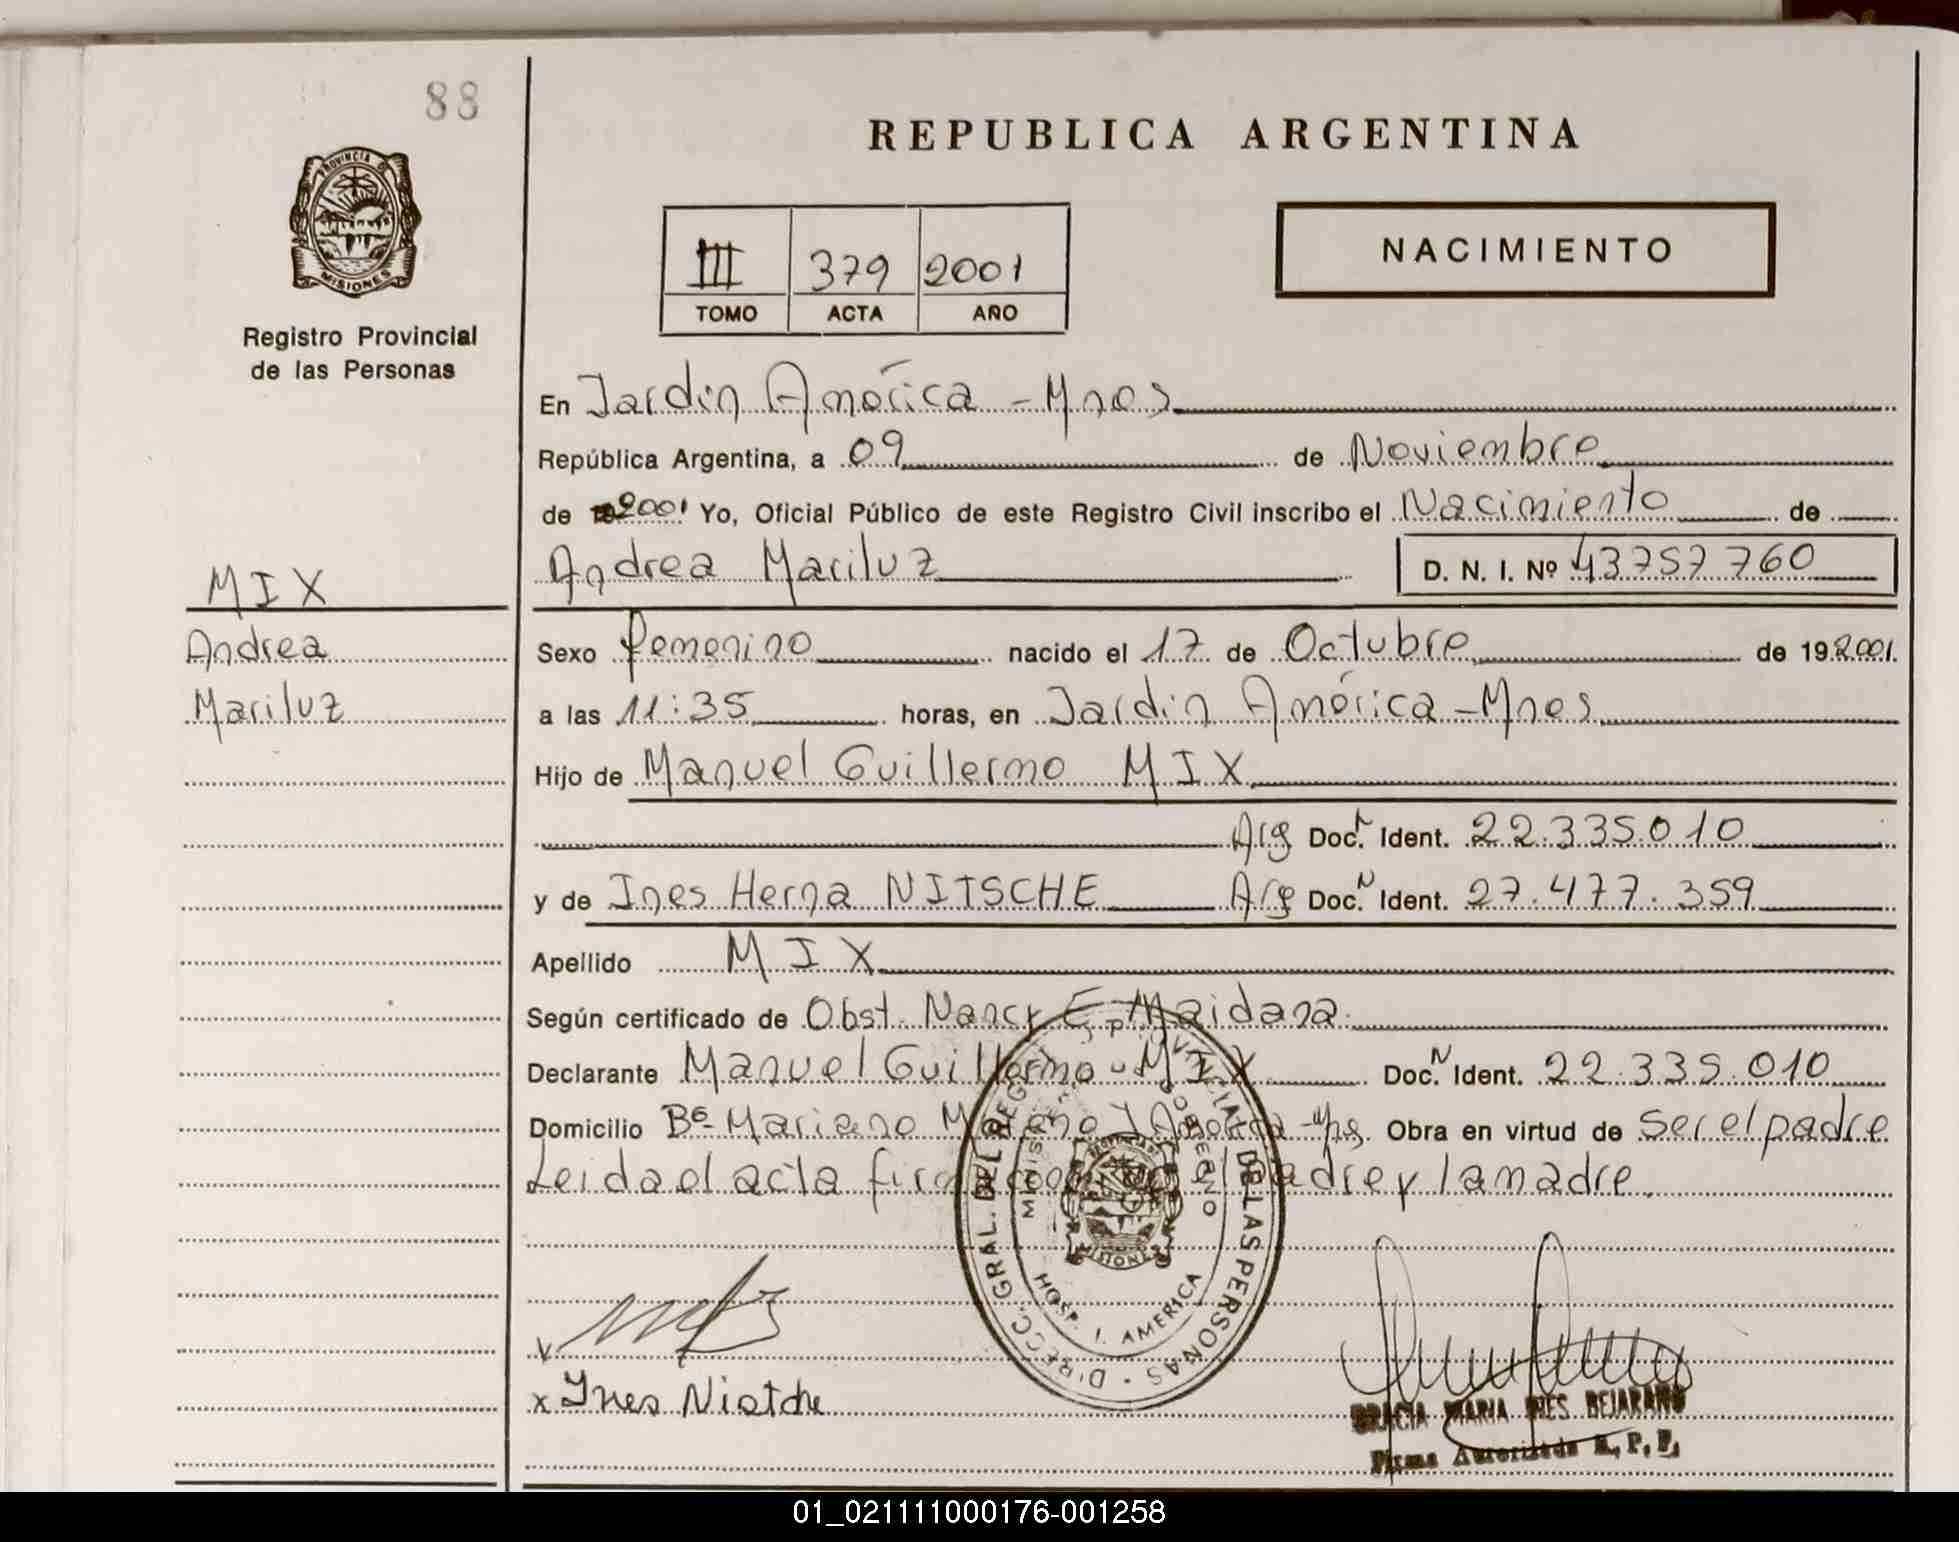 88
REPUBLICA ARGENTINA
PROVINCIA D
MISIONES
Registro Provincial
de las Personas
III 379 2001
TOMO ACTA AÑO
NACIMIENTO
En Jardin América - Mnes
República Argentina, a 09 de Noviembre
de 2001 Yo, Oficial Público de este Registro Civil inscribo el Nacimiento de
Andrea Mariluz D. N. I. Nº 43757760
MIX
Andrea
Mariluz
Sexo femenino nacido el 17 de Octubre de 19 2001.
a las 11:35 horas, en Jardin América - Mnes
Hijo de Manuel Guillermo MIX
Arg Doc. N Ident. 22.335.010
y de Ines Herna NITSCHE Arg Doc. N Ident. 27.477.359
Apellido MIX
Según certificado de Obst. Nancy E. Maidana
Declarante Manuel Guillermo MIX Doc. N Ident. 22.335.010
Domicilio Bº Mariano Moreno J América - Mns Obra en virtud de ser el padre
Leida el acta firman el padre y la madre.
DIRECC. GRAL. DEL REG. PROVINCIAL DE LAS PERSONAS
MINISTER GOBIERNO
MISIONES
HOSP. J. AMERICA
x Ines Nistche
GRACIA MARIA INES BEJARANO
Firma Autorizada R. P. P.
01_021111000176-001258